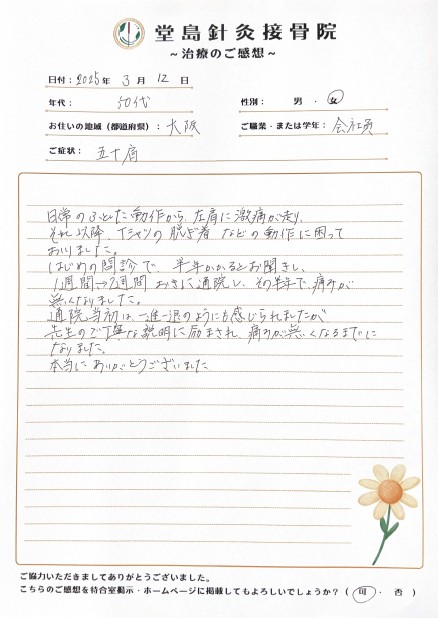 堂島針灸接骨院
~治療のご感想~
日付: 2025年 3月 12日
年代: 50代 性別: 男・女
お住いの地域(都道府県): 大阪 ご職業・または学年: 会社員
ご症状: 五十肩
日常のふとした動作から、左肩に激痛が走り、
それ以降、Tシャツの脱ぎ着などの動作に困って
おりました。
はじめの問診で、半年かかるとお聞きし、
1週間→2週間おきに通院し、その半年で、痛みが
無くなりました。
通院当初は、一進一退のようにも感じられましたが
先生のご丁寧な説明に励まされ、痛みが無くなるまでに
なりました。
本当にありがとうございました
ご協力いただきましてありがとうございました。
こちらのご感想を待合室掲示・ホームページに掲載してもよろしいでしょうか?(可・否)